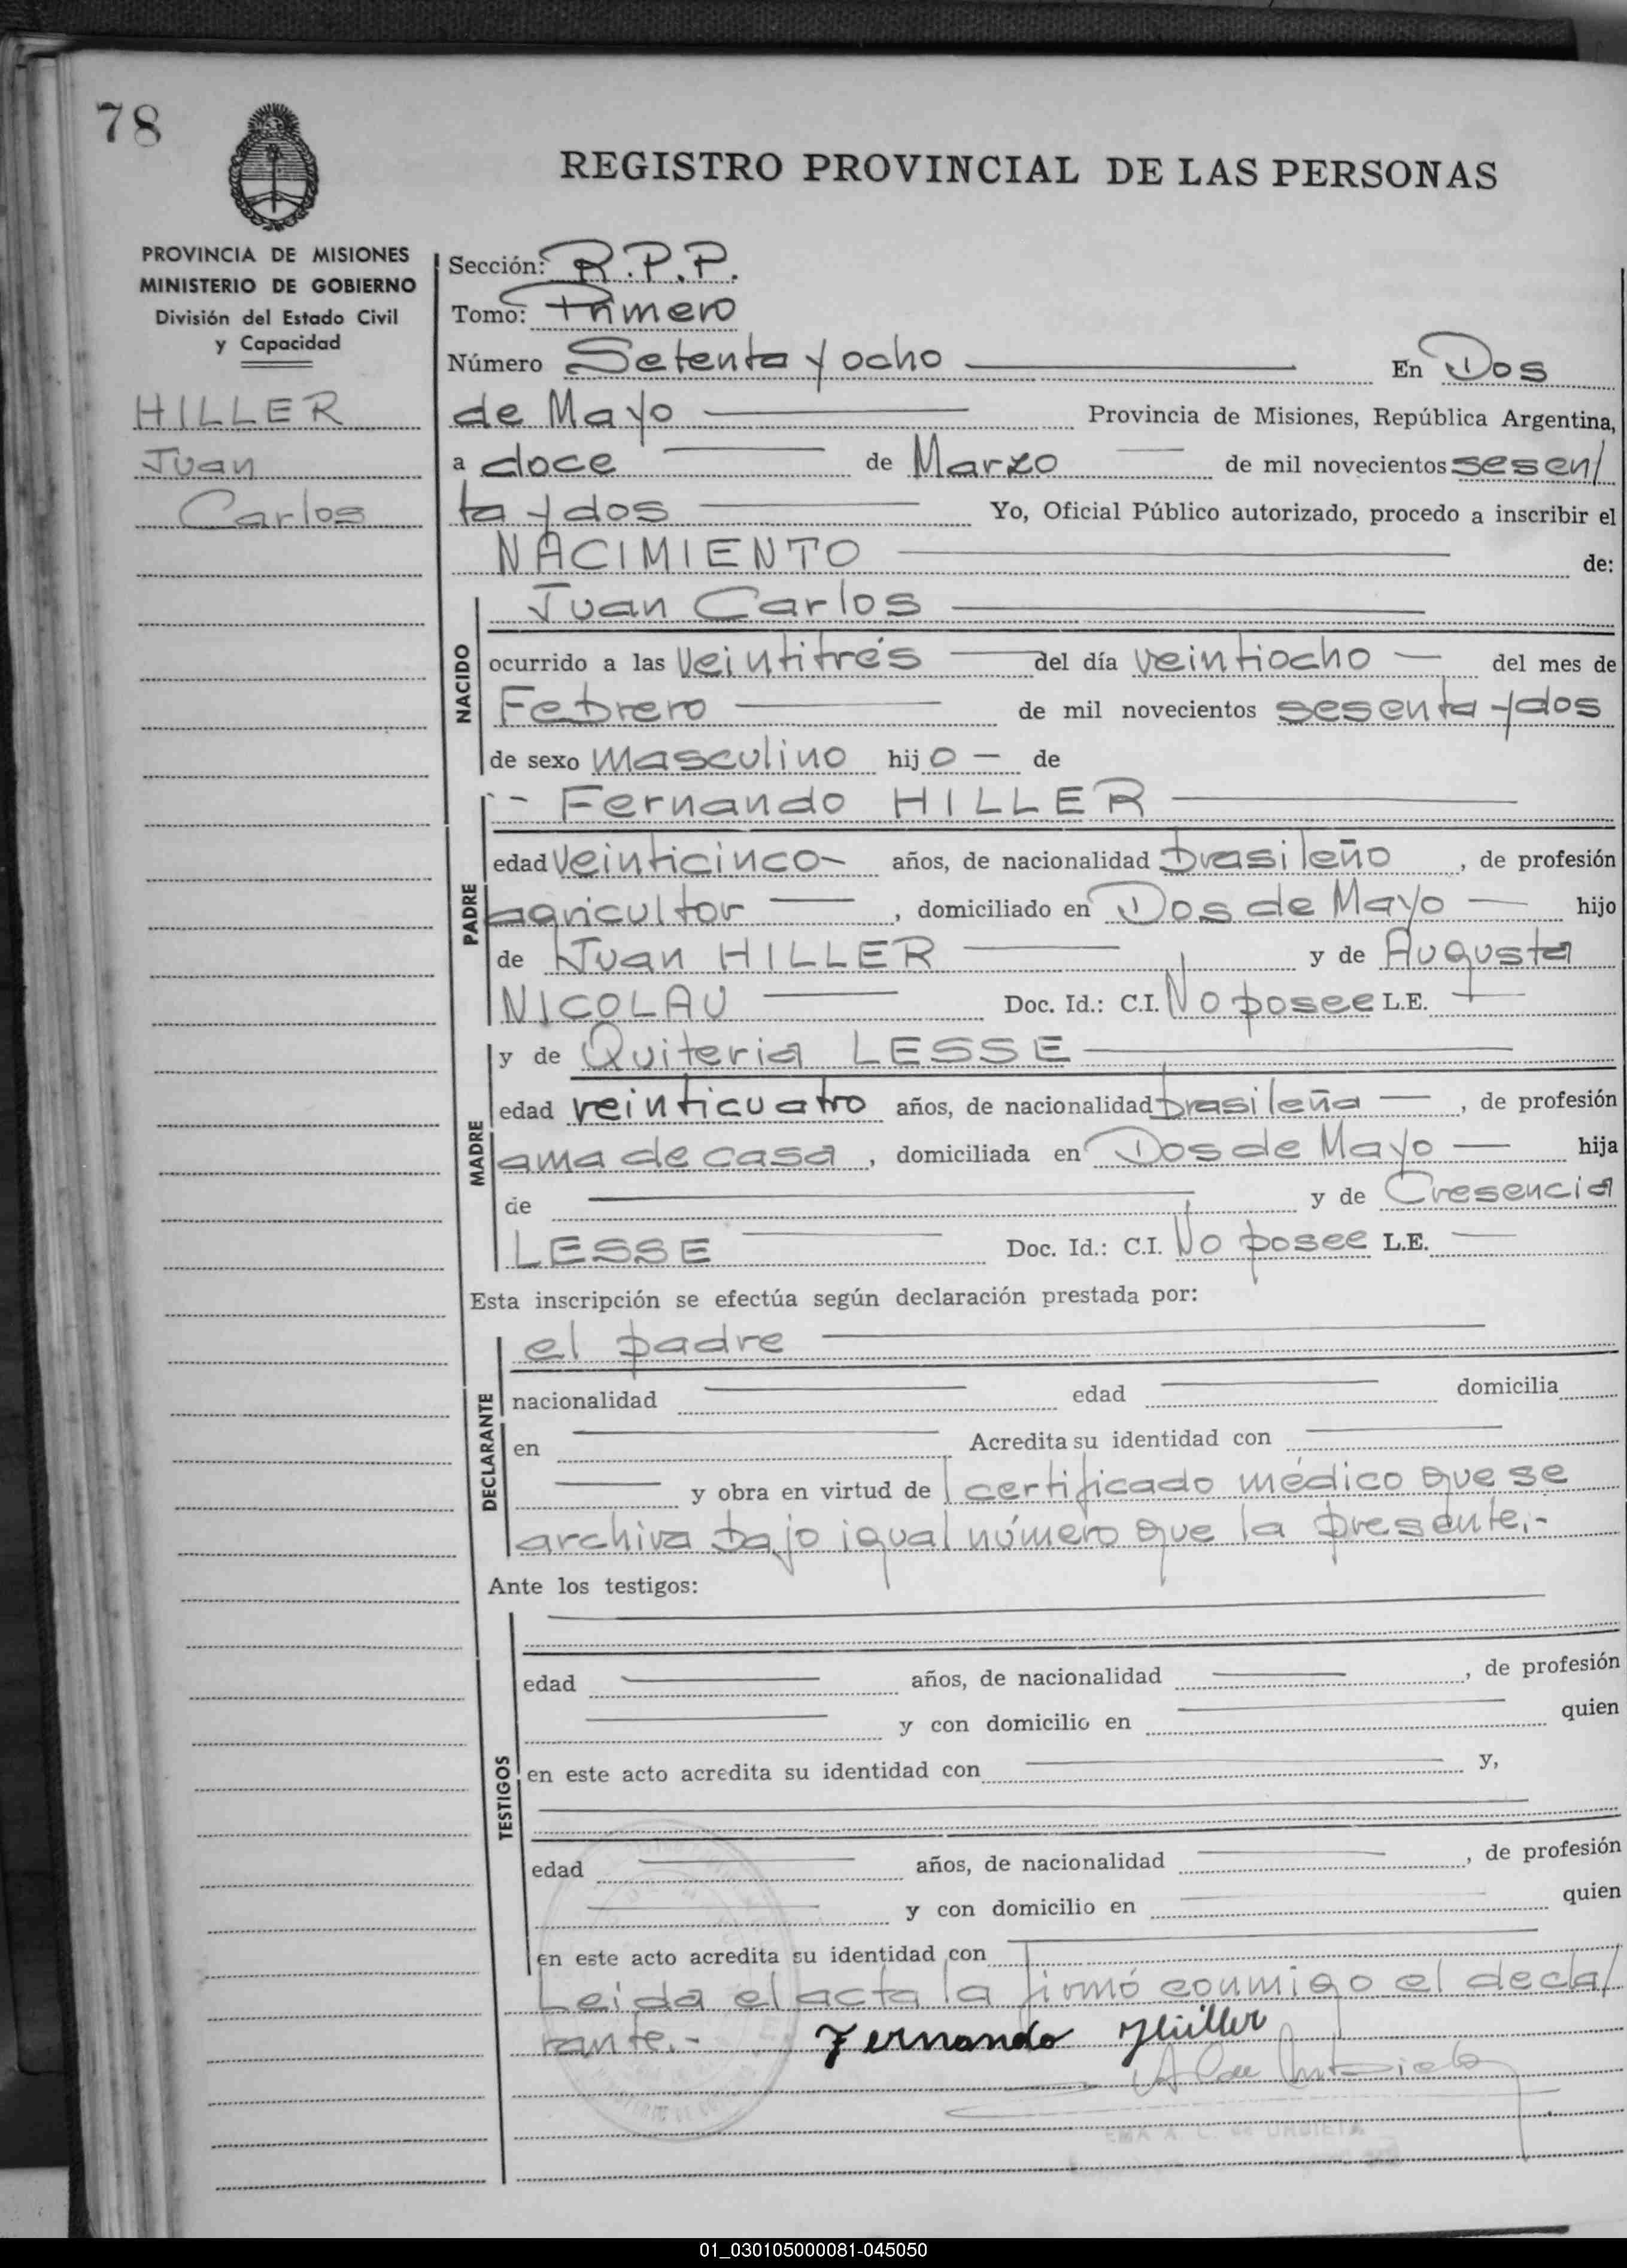 78
REGISTRO PROVINCIAL DE LAS PERSONAS
PROVINCIA DE MISIONES
MINISTERIO DE GOBIERNO
División del Estado Civil
y Capacidad
HILLER
Juan
Carlos
Sección: R.P.P.
Tomo: Primero
Número Setenta y ocho En Dos
de Mayo Provincia de Misiones, República Argentina,
a doce de Marzo de mil novecientos sesen/
ta y dos Yo, Oficial Público autorizado, procedo a inscribir el
NACIMIENTO de:
NACIDO
Juan Carlos
ocurrido a las veintitrés del día veintiocho del mes de
Febrero de mil novecientos sesenta y dos
de sexo masculino hijo de
PADRE
Fernando HILLER
edad veinticinco años, de nacionalidad brasileño, de profesión
agricultor, domiciliado en Dos de Mayo hijo
de Juan HILLER y de Augusta
NICOLAU Doc. Id.: C.I. No posee L.E.
MADRE
y de Quiteria LESSE
edad veinticuatro años, de nacionalidad brasileña, de profesión
ama de casa, domiciliada en Dos de Mayo hija
de y de Cresencia
LESSE Doc. Id.: C.I. No posee L.E.
Esta inscripción se efectúa según declaración prestada por:
DECLARANTE
el padre
nacionalidad edad domicilia
en Acredita su identidad con
y obra en virtud de certificado médico que se
archiva bajo igual número que la presente.-
Ante los testigos:
TESTIGOS
edad años, de nacionalidad , de profesión
y con domicilio en quien
en este acto acredita su identidad con y,
edad años, de nacionalidad , de profesión
y con domicilio en quien
en este acto acredita su identidad con
Leida el acta la firmó conmigo el decla/
rante.- Fernando Hiller
EMA A. L. de URBIETA
01_030105000081-045050